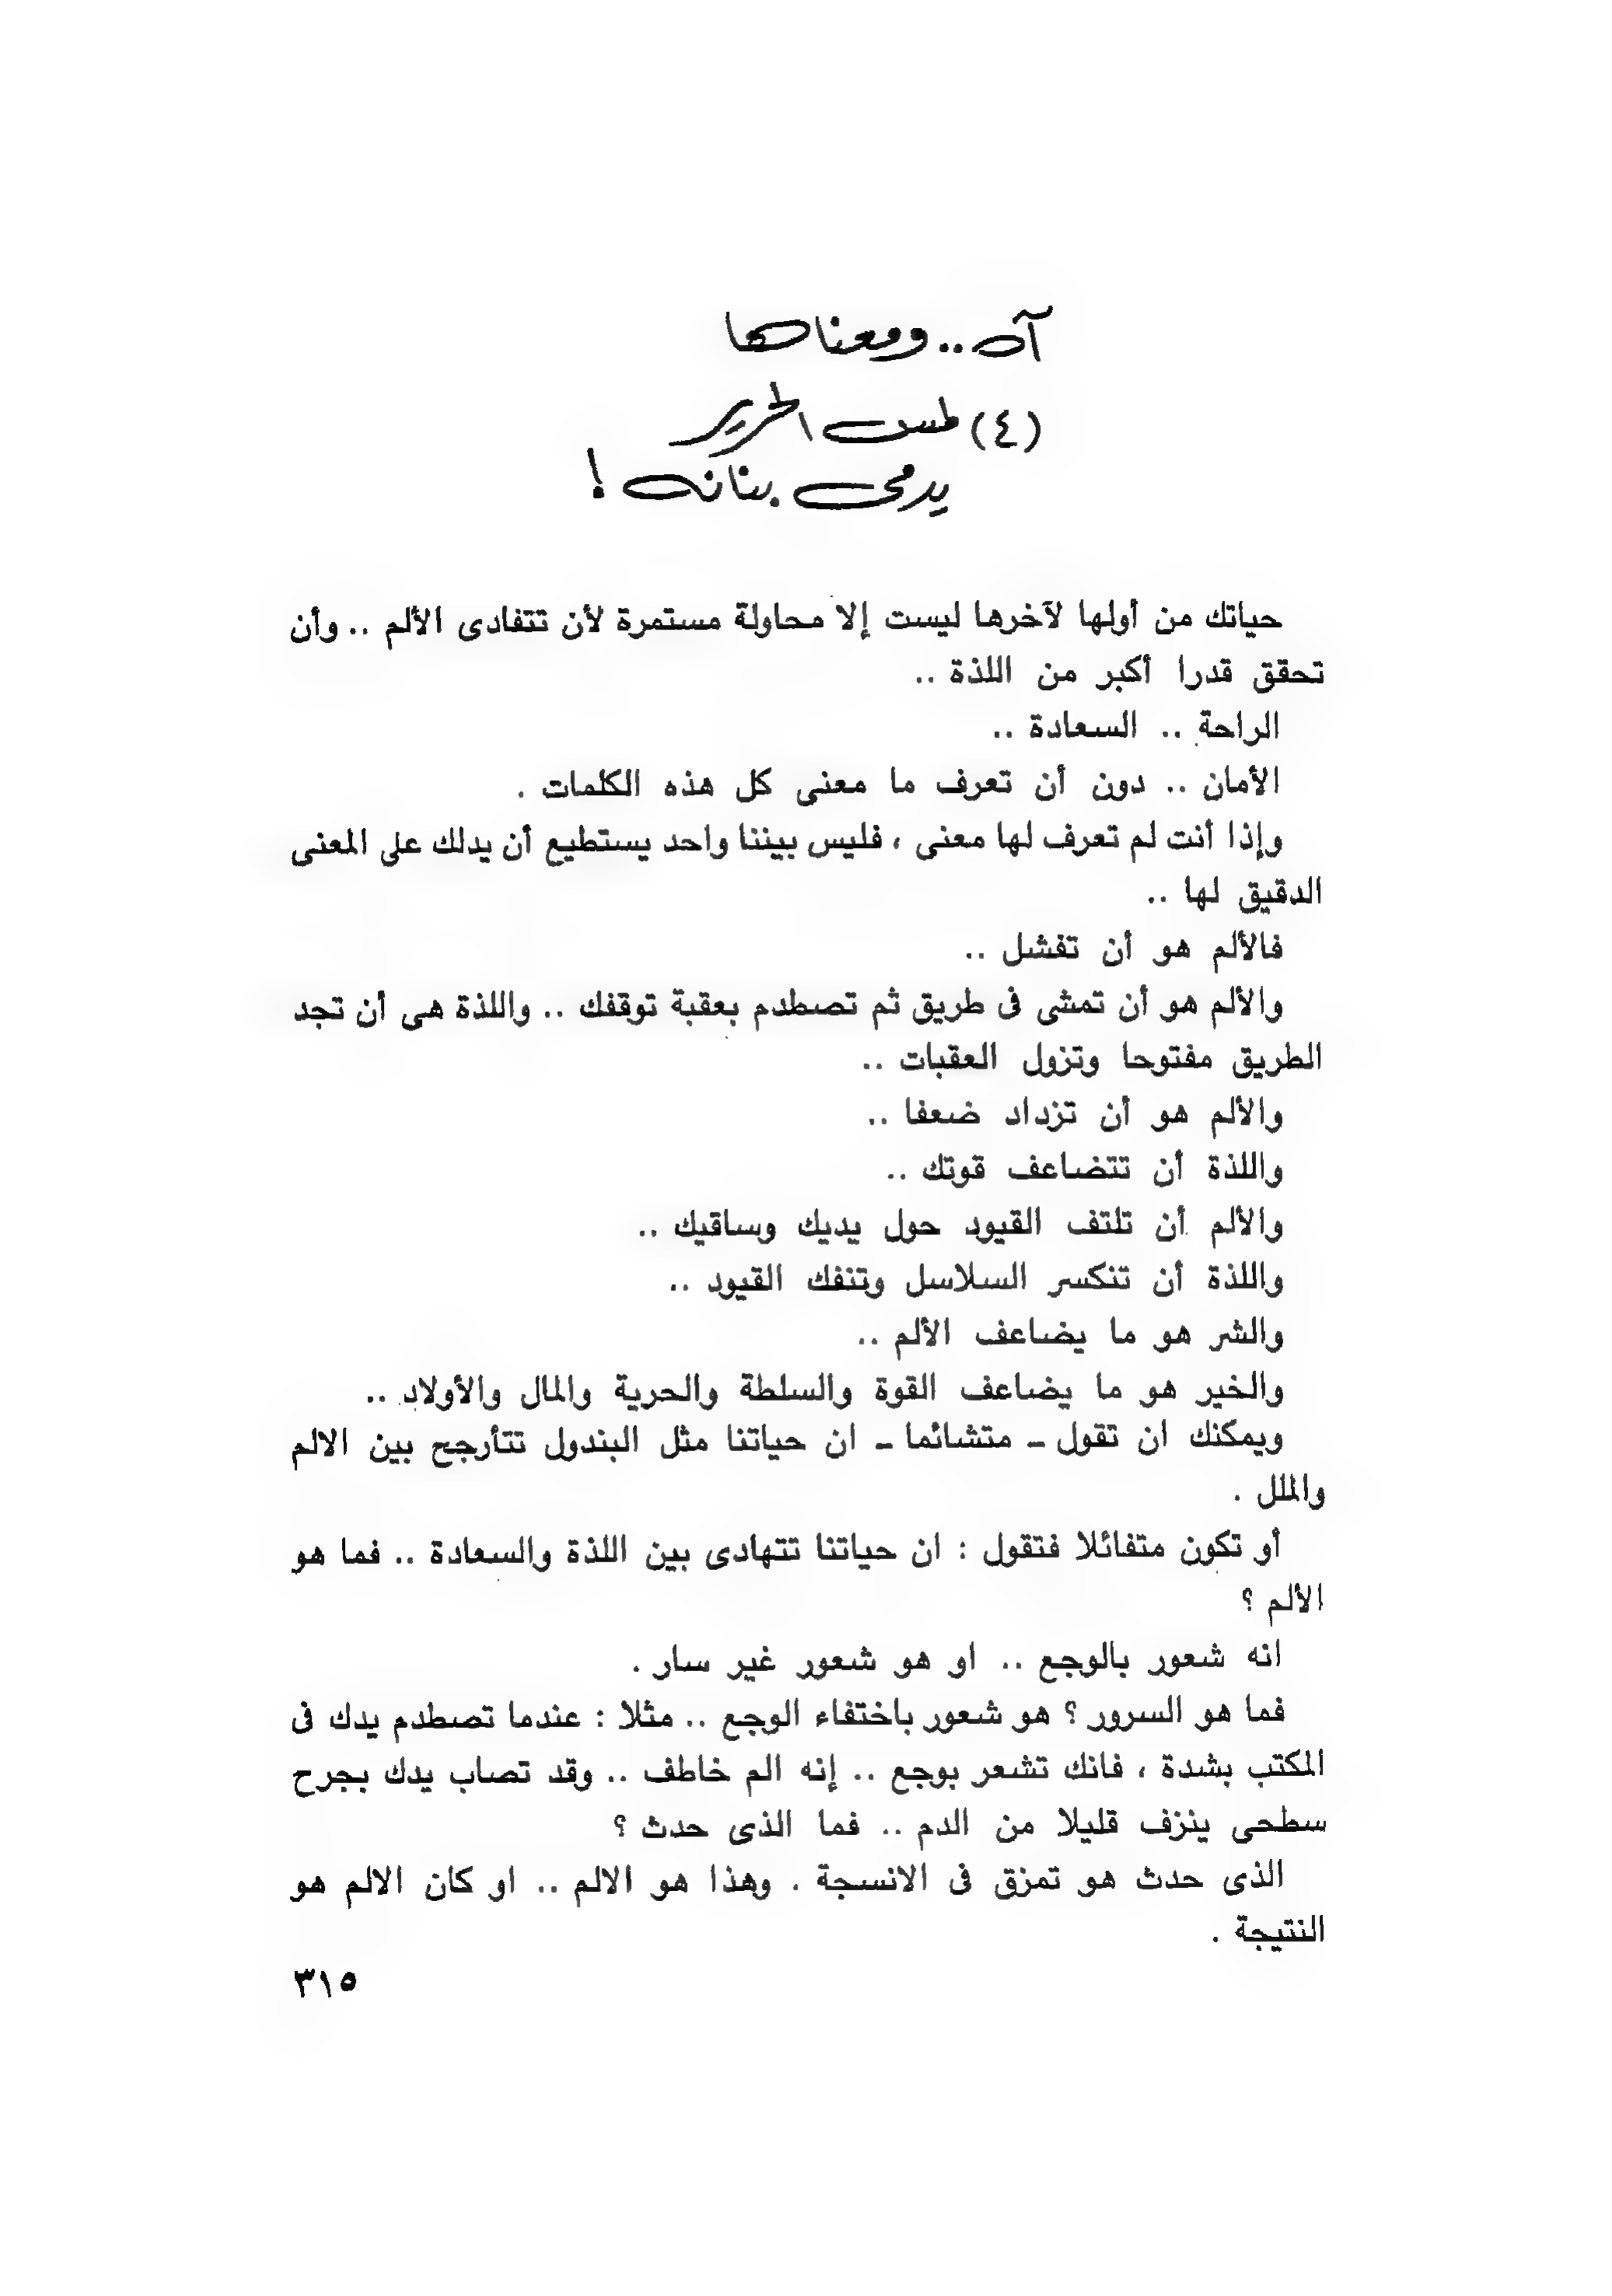 آه .. ومعناها
(٤) لمس الحرير
يدمى بنانه !
حياتك من أولها لآخرها ليست إلا محاولة مستمرة لأن تتفادى الألم .. وأن
تحقق قدرا أكبر من اللذة ..
الراحة .. السعادة ..
الأمان .. دون أن تعرف ما معنى كل هذه الكلمات .
وإذا أنت لم تعرف لها معنى ، فليس بيننا واحد يستطيع أن يدلك على المعنى
الدقيق لها ..
فالألم هو أن تفشل ..
والألم هو أن تمشى فى طريق ثم تصطدم بعقبة توقفك .. واللذة هى أن تجد
الطريق مفتوحا وتزول العقبات ..
والألم هو أن تزداد ضعفا ..
واللذة أن تتضاعف قوتك ..
والألم أن تلتف القيود حول يديك وساقيك ..
واللذة أن تنكسر السلاسل وتنفك القيود ..
والشر هو ما يضاعف الألم ..
والخير هو ما يضاعف القوة والسلطة والحرية والمال والأولاد ..
ويمكنك ان تقول ـ متشائما ـ ان حياتنا مثل البندول تتأرجح بين الالم
والملل .
أو تكون متفائلا فتقول : ان حياتنا تتهادى بين اللذة والسعادة .. فما هو
الألم ؟
انه شعور بالوجع .. او هو شعور غير سار .
فما هو السرور ؟ هو شعور باختفاء الوجع .. مثلا : عندما تصطدم يدك فى
المكتب بشدة ، فانك تشعر بوجع .. إنه الم خاطف .. وقد تصاب يدك بجرح
سطحى ينزف قليلا من الدم .. فما الذى حدث ؟
الذى حدث هو تمزق فى الانسجة . وهذا هو الالم .. او كان الالم هو
النتيجة .
٣١٥